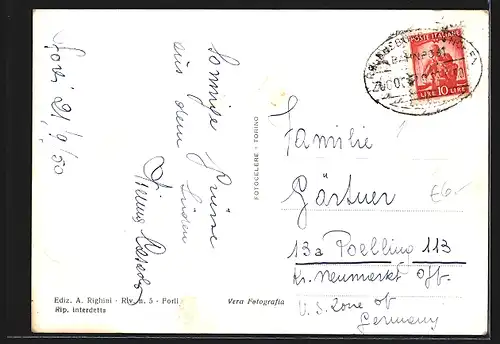 Forlì 21/9/50
Sonnige Grüsse
aus dem Süden
FOTOCELERE - TORINO
POSTE ITALIANE
BAHNPOST
ZUG 00
LIRE 10 LIRE
Familie
Gärtner
13a Poelling 113
Kr. Neumarkt Opf.
U.S. Zone of
Germany
£6.-
Ediz. A. Righini - Riv. n. 5 - Forlì
Rip. interdetta
Vera Fotografia